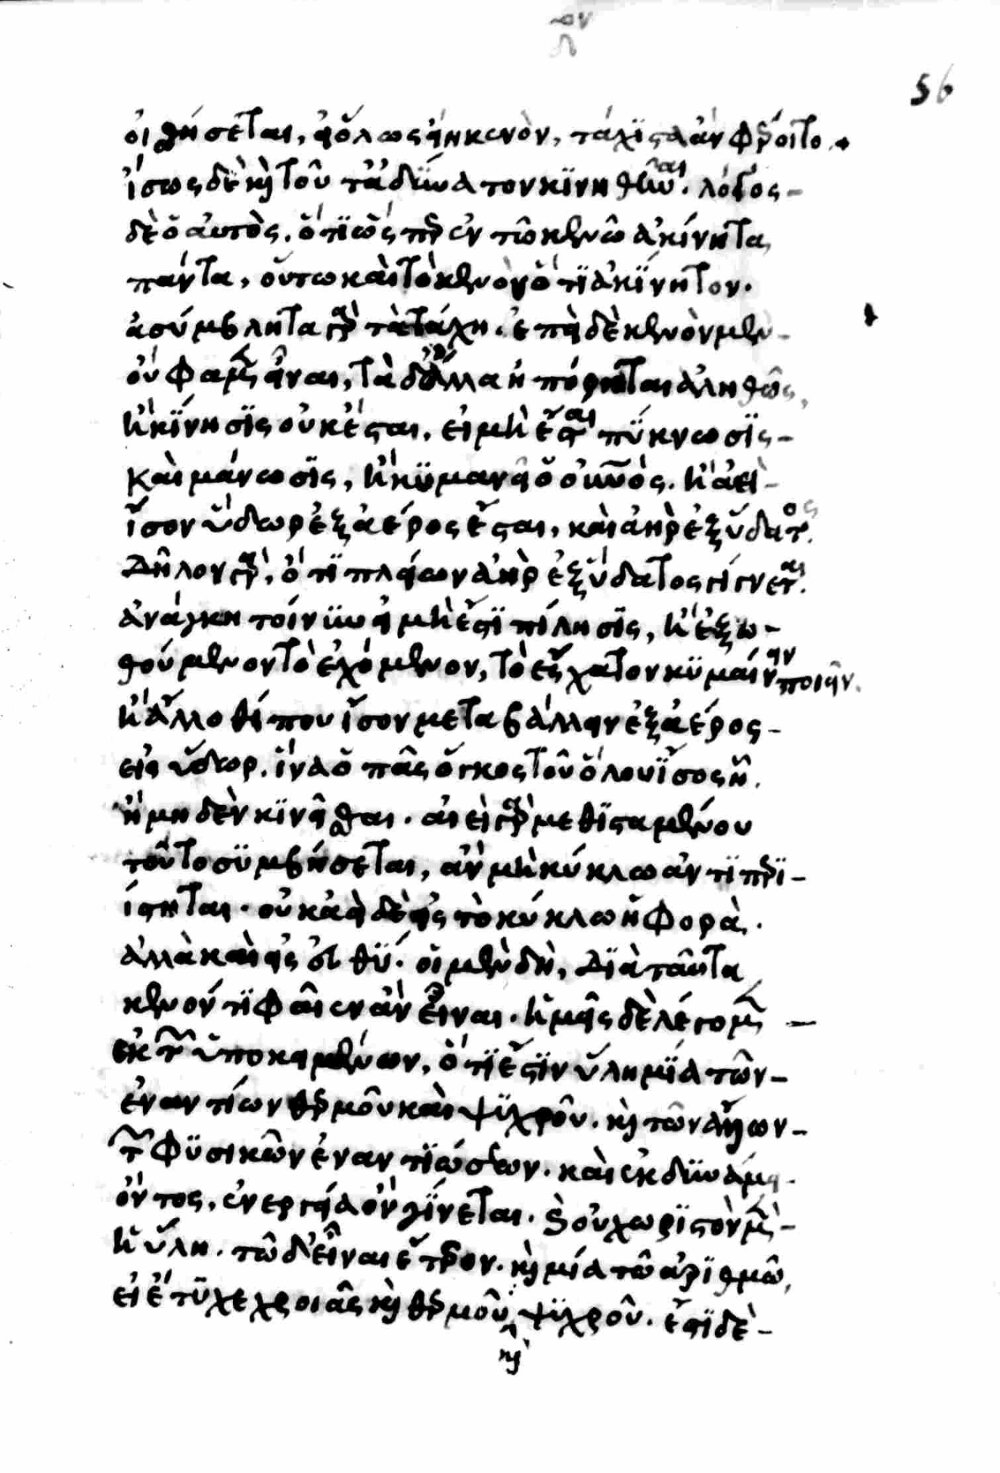 56
οιηθήσεται, ἢ ὅλως ἢν κενὸν, τάχιστα ἂν φέροιτο.
ἴσως δὲ καὶ τοῦτ' ἀδύνατον κινηθῆναι. λόγος
δὲ ὁ αὐτὸς, ὅτι ὥσπερ ἐν τῶ κενῶ ἀκίνητα
πάντα, οὕτω καὶ τὸ κενὸν ὅτι ἀκίνητον.
ἀσύμβλητα γὰρ τὰ τάχη. ἐπεὶ δὲ κενὸν μὲν
οὔ φαμεν εἶναι, τὰ δ' ἄλλα ἠπόρηται ἀληθῶς,
ἢ κίνησις οὐκ ἔσται, εἰ μὴ ἔσται πύκνωσις
καὶ μάνωσις, ἢ κυμανεῖ ὁ οὐνος. ἢ ἀεὶ
ἴσον ὕδωρ ἐξ ἀέρος ἔσται, καὶ ἀὴρ ἐξ ὕδατος.
Δῆλον γὰρ, ὅτι πλείων ἀὴρ ἐξ ὕδατος γίνεται.
ἀνάγκη τοίνυν εἰ μὴ ἔστι πίλησις, ἢ ἐξω
θούμενον τὸ ἐχόμενον, τὸ ἔσχατον κυμαίνειν ποιεῖν.
ἢ ἄλλοθί που ἴσον μεταβάλλειν ἐξ ἀέρος
εἰς ὕδωρ. ἵνα ὁ πᾶς ὄγκος τοῦ ὅλου ἴσος ᾖ.
ἢ μηδὲν κινεῖσθαι. αἰεὶ γὰρ μεθισταμένου
τοῦτο συμβήσεται, ἂν μὴ κύκλω ἀντιπερι
ίστηται. οὐκ ἀεὶ δὲ εἰς τὸ κύκλω ἡ φορὰ.
ἀλλὰ καὶ εἰς εὐθύ. οἱ μὲν δὴ, Διὰ ταῦτα
κενόν τι φαῖεν ἂν εἶναι. ἡμεῖς δὲ λέγομεν
ἐκ τῶν ὑποκειμένων, ὅτι ἔστιν ὕλη μία τῶν
ἐναντίων θερμοῦ καὶ ψυχροῦ. καὶ τῶν ἄλλων
τῶν φυσικῶν ἐναντιώσεων. καὶ ἐκ δυνάμει
ὄντος, ἐνεργείᾳ ὂν γίνεται. καὶ οὐ χωριστὸν μὲν
ἡ ὕλη. τῶ δ' εἶναι ἕτερον. καὶ μία τῶ ἀριθμῶ,
εἰ ἔτυχε χροιᾶς καὶ θερμοῦ καὶ ψυχροῦ. ἔστι δὲ